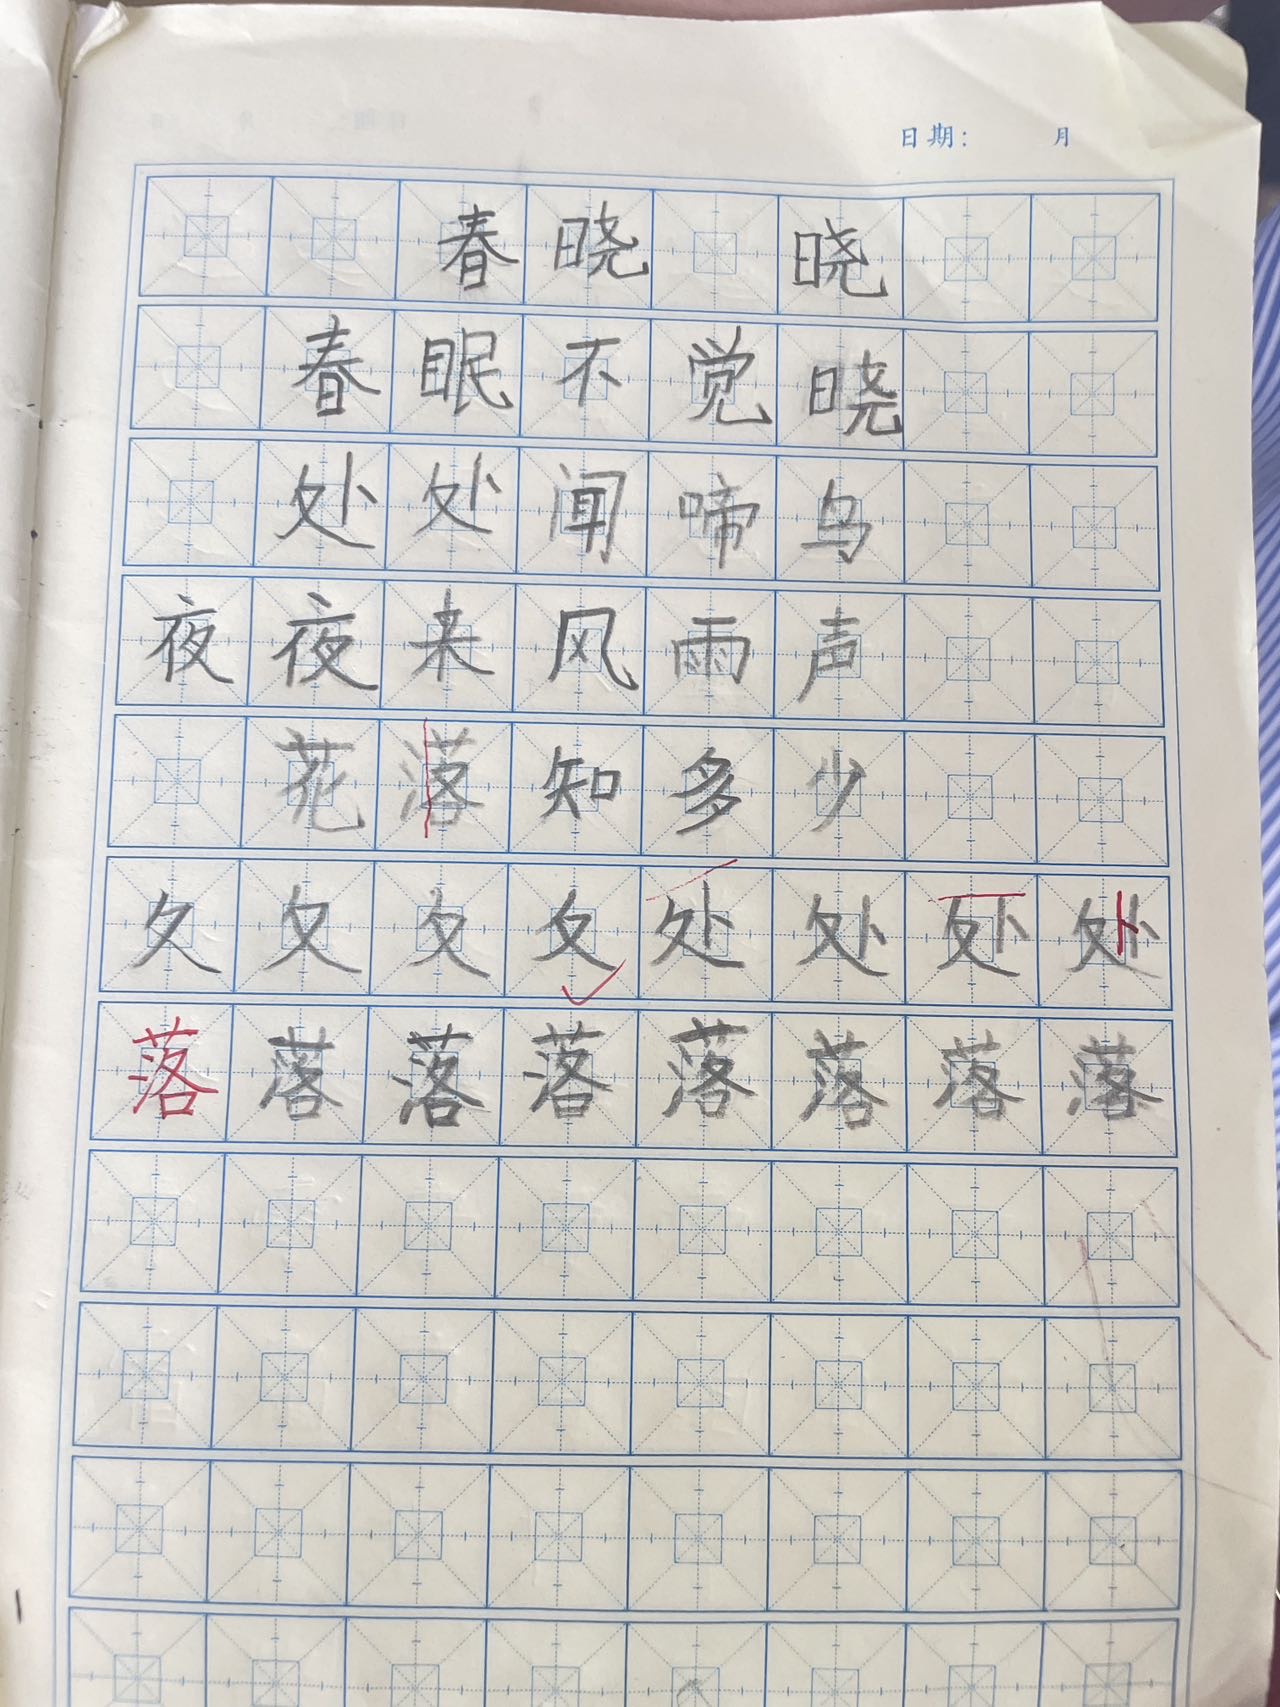 日期： 月
春晓 晓
春眠不觉晓
处处闻啼鸟
夜夜来风雨声
花落知多少
夂夂夂夂处处处处
落落落落落落落落